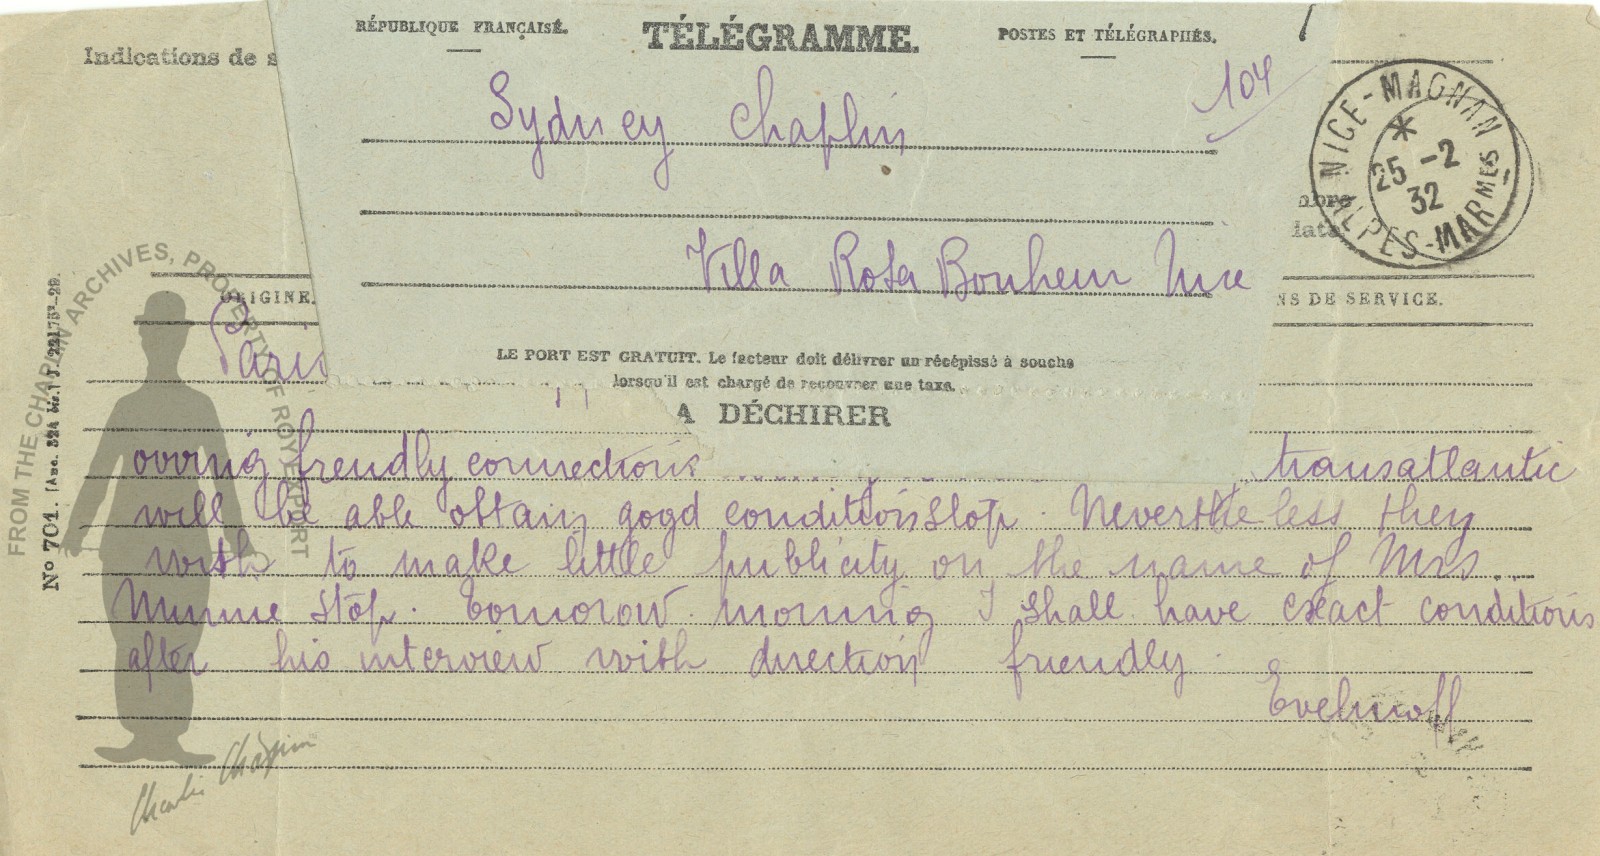 RÉPUBLIQUE FRANÇAISE.
TÉLÉGRAMME.
POSTES ET TÉLÉGRAPHES.
Indications de s
104
Sydney Chaplin
NICE-MAGNAN
* 25-2 32
ALPES-MARMES
mbre
date
Villa Rosa Bonheur Nice
ORIGINE.
NS DE SERVICE.
Paris
LE PORT EST GRATUIT. Le facteur doit délivrer un récépissé à souche
lorsqu'il est chargé de recouvrer une taxe.
A DÉCHIRER
owing frendly connections transatlantic
will be able obtain good conditions stop. Nevertheless they
wish to make little publicity on the name of Mrs
Minnie stop. Tomorow morning I shall have exact conditions
after his interview with direction friendly.
Evelinoff
No 701.
FROM THE CHAPLIN ARCHIVES, PROPERTY OF ROY EXPORT
Charlie Chaplin